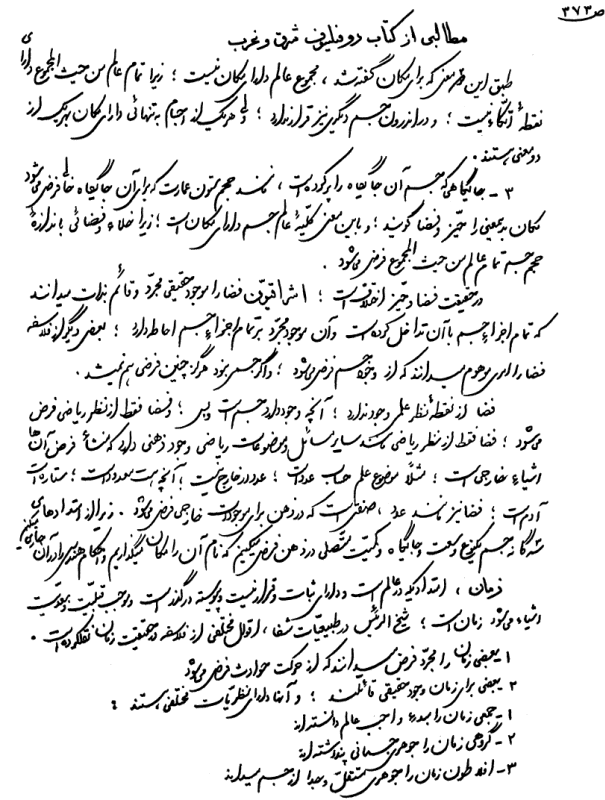 ص ۳۷۳
مطالبی از کتاب دو فیلسوف شرق و غرب
طبق این دو معنی که برای مکان گفته شد ، مجموع عالم دارای مکان نیست ؛ زیرا تمام عالم من حیث المجموع دارای
نقطهٔ اتّکاء نیست ؛ و در اندرون جسم دیگری نیز قرار ندارد ؛ ولی هر یک از اجسام به تنهائی دارای مکان بهر یک از
دو معنی هستند .
۳ - جائیگاهی که جسم آن جایگاه را پر کرده است ، مانند حجم ستون عمارت که برای آن جایگاه خالی فرض می‌شود
مکان به این معنی را حیّز و فضا گویند ؛ و باین معنی کلّیهٔ عالم جسم دارای مکان است ؛ زیرا خلاء و فضائی باندازهٔ
حجم جسم تمام عالم من حیث المجموع فرض می‌شود .
در حقیقت فضا و حیّز اختلاف است ؛ اشراقیّون فضا را موجود حقیقی مجرّد و قائم بذات میدانند
که تمام اجزاءِ جسم با آن تداخل کرده است و آن موجود مجرّد بر تمام اجزاءِ جسم احاطه دارد ؛ بعضی دیگر از فلاسفه
فضا را امری موهوم میدانند که از وجود جسم فرض می‌شود ؛ و اگر جسمی نبود هرگز چنین فرضی هم نمیشد .
فضا از نقطهٔ نظر علمی وجود ندارد ؛ آنچه وجود دارد جسم است و بس ؛ فضا فقط از نظر ریاضی فرض
می‌شود ؛ فضا فقط از نظر ریاضی مانند سایر مسائل و موضوعات ریاضی وجود ذهنی دارد که منشأ فرض آن‌ها
اشیاءِ خارجی است ؛ مثلاً موضوع علم حساب عدد است ؛ عدد در خارج نیست ؛ آنچه هست معدود است ؛ ستاره است
آدم است ؛ فضا نیز مانند عدد ، صفتی است که در ذهن برای موجودات خارجی فرض می‌شود . زیرا از امتدادهای
سه گانهٔ جسم یکنوع وسعت و جایگاه و کمّیت متّصلی در ذهن فرض میکنیم که نام آن را مکان میگذاریم و احکام هندسی را در آن جاری میکنیم
زمان ، امتدادیکه در عالم است و دارای ثبات و قرار نیست و پیوسته در گذر است و موجب قبلیّت و بعدیّت
اشیاء می‌شود زمان است ؛ شیخ الرّئیس در طبیعیّات شفا ، اقوال مختلفی از فلاسفه در حقیقت زمان نقل کرده است .
۱ - بعضی زمان را مجرّد فرض میدانند که از حرکت حوادث فرض می‌شود
۲ - بعضی برای زمان وجود حقیقی قائلند ؛ و آنها دارای نظریّات مختلفی هستند :
۱ - جمعی زمان را مبدء و واجب عالم دانسته‌اند
۲ - گروهی زمان را جوهری جسمانی پنداشته‌اند
۳ - افلاطون زمان را جوهری مستقلّ و جدا از جسم میداند